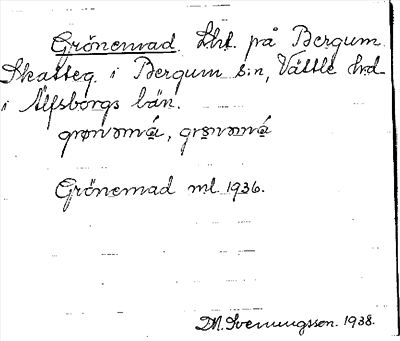 Grönemad. Lht. på Bergum
Skatteg. i Bergum s:n, Vättle hd
i Älfsborgs län.
Grönemad ml. 1936.
D.M. Svenungsson. 1938.